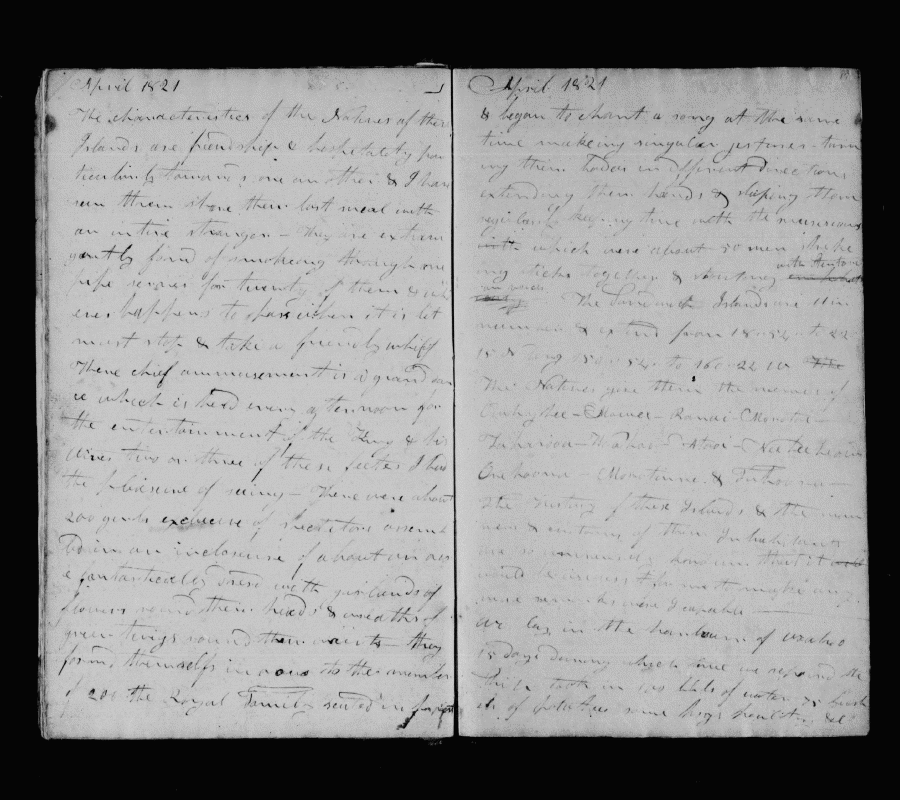 April 1821
The characteristics of the Natives of these
Islands are friendship & hospitality par
ticularly towards one an other & I have
seen them share their last meal with
an intire stranger - They are extrava
gantly fond of smokeing through one
pipe serves for twenty of them & who
ever happens to pass when it is lit
must stop & take a friendly whiff
There chief ammusement is a grand dan
ce which is held every afternoon for
the entertainment of the King & his
wives two or three of these fetes I had
the pleasure of seeing - There were about
200 girls exclusive of spectators assem
bled in an inclosure of about an acre
fantastically dresd with garlands of
flowers round their heads & wreaths of
green twigs round their waists - they
form themselfs in a row to the number
of 200 the Royal Family seated in front
April 1821
& began to chant a song at the same
time makeing singular jestures turn
ing their bodies in different directions
extending their hands & sliping them
regularly keeping time with the musicians
with which were about 50 men strike
ing sticks together &
The Sandwich Islands are 11 in
number & extend from 18.52 to 22
15 N Long 150.54 to 160.22 W
The Natives give them the names of
Owhyhee - Mowee - Ranai - Morotoi -
Tahaorowa - Woahoo - Atooi - Neeheeheeow
Oreehooa - Morotinne & Tahoora -
The History of these Islands & the man
ners & customs of their Inhabitants
are so numerously known that it
would be useless for me to make any
more remarks were I capable -
We lay in the harbour of woahoo
15 days during which time we repaired the
Ship took in 100 bbls of water 75 bush
els of potatoes some hogs poultry &c